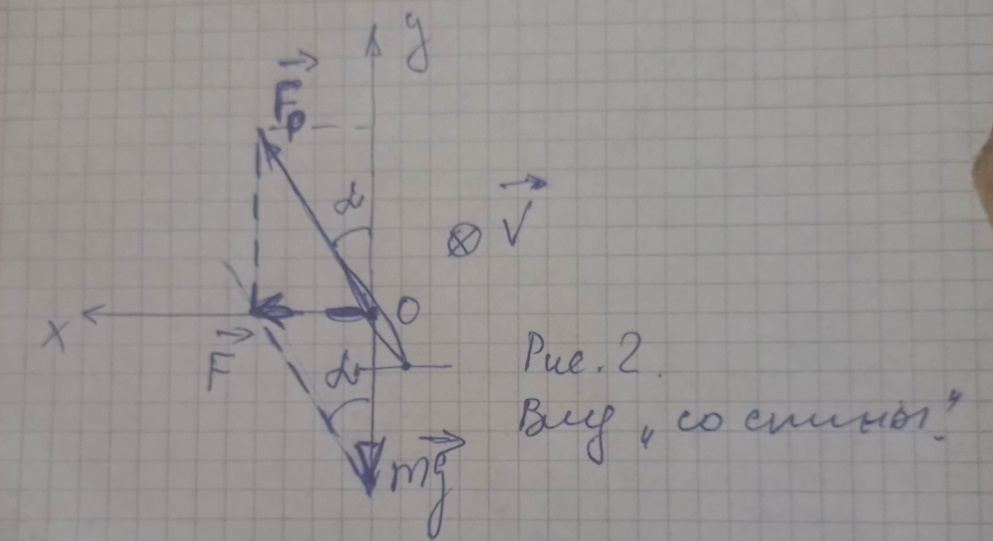 y
F₀
α
V
x
O
F
α
mg
Рис. 2.
Вид „со спины”.